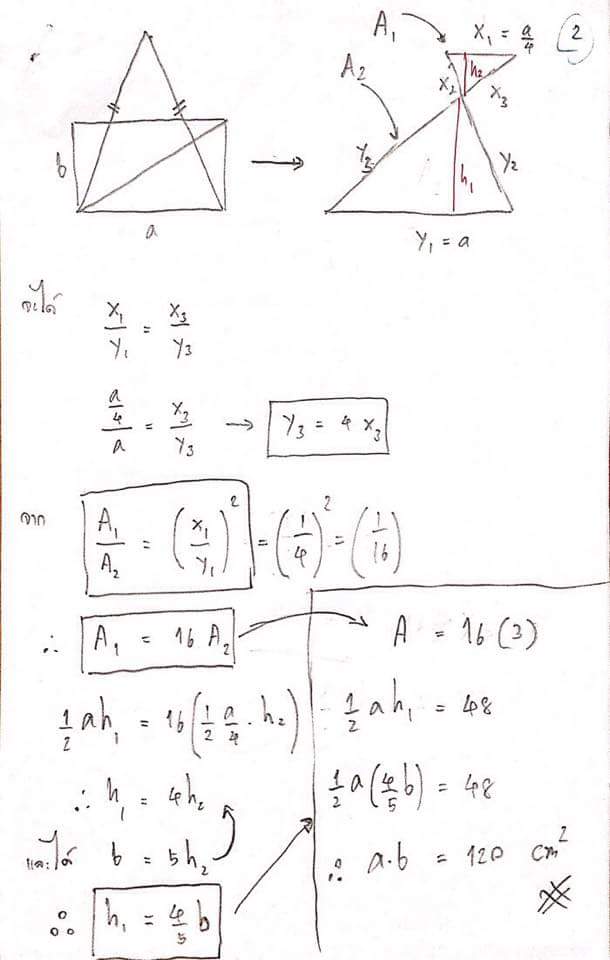 2
b
a
A₁
x₁ = a/4
A₂
h₂
x₂
x₃
y₃
y₂
h₁
y₁ = a
จะได้
x₁/y₁ = x₃/y₃
(a/4)/a = x₃/y₃ → y₃ = 4 x₃
จาก A₁/A₂ = (x₁/y₁)² = (1/4)² = (1/16)
∴ A₁ = 16 A₂
1/2 ah₁ = 16(1/2 a/4 · h₂)
∴ h₁ = 4h₂
และได้ b = 5h₂
∴ h₁ = 4/5 b
A = 16 (3)
1/2 a h₁ = 48
1/2 a(4/5 b) = 48
∴ a·b = 120 cm²